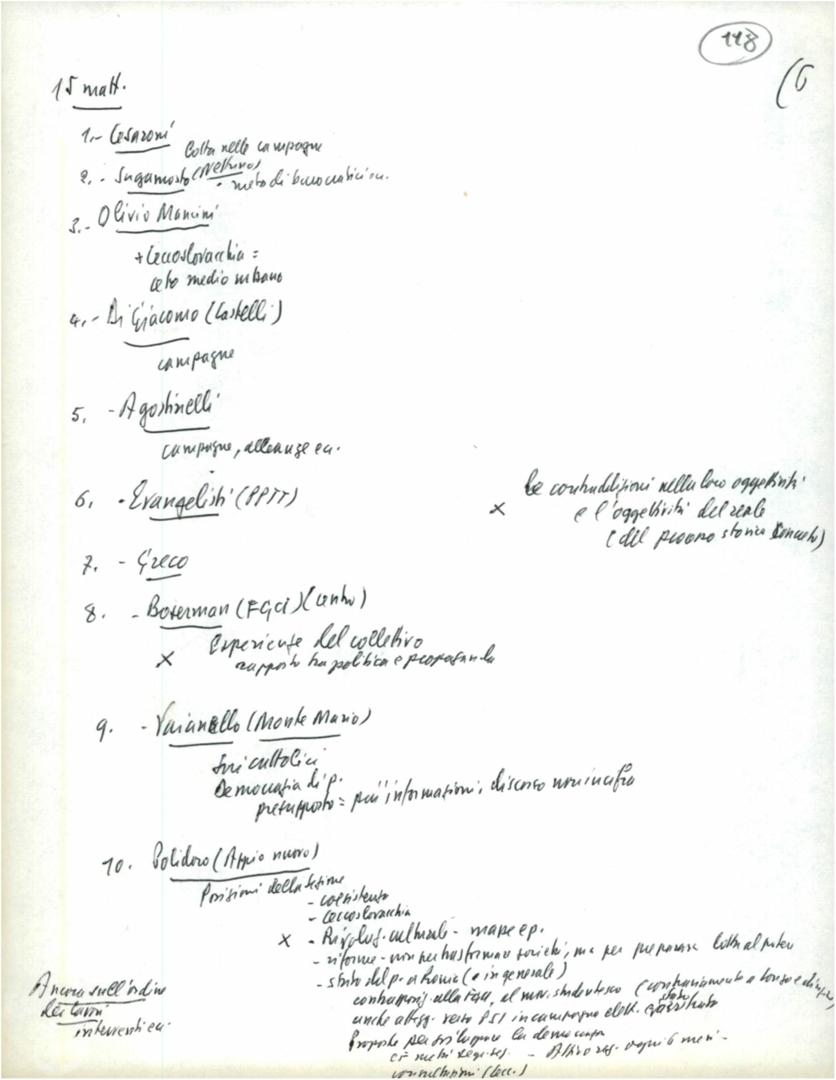 118
(6
15 matt.
1.- Cesaroni
Lotta nelle campagne
2.- Sugamosto (Nettuno)
- metodi burocratici
3.- Olivio Mancini
+ Cecoslovacchia =
ceto medio urbano
4.- Di Giacomo (Castelli)
campagne
5. - Agostinelli
campagne, alleanze ecc.
6. - Evangelisti (PPTT)
x le contraddizioni nella loro oggettività
e l'oggettività del reale
(del processo storico concreto)
7. - Greco
8. - Boserman (FGCI) (Centro)
x Esperienze del collettivo
rapporto tra politica e propaganda
9. - Vaianello (Monte Mario)
Sui cattolici
Democrazia di p.
presupposto = più informazioni, discorso non in cifra
10. Polidoro (Appio nuovo)
Posizioni della sezione
- coesistenza
- Cecoslovacchia
x - Rivoluz. culturale -
- riforme - non per trasformare società, ma per preparare lotta al potere
- stato del p. a Roma (e in generale)
contrappos. alla FGCI, al mov. studentesco (contrariamente a Longo e
anche attegg. verso PSI in campagna elett. stato
Proposte per sviluppare la democrazia
- Attivo ogni 6 mesi -
consultazioni (
Ancora sull'ordine
dei lavori
interventi ecc.